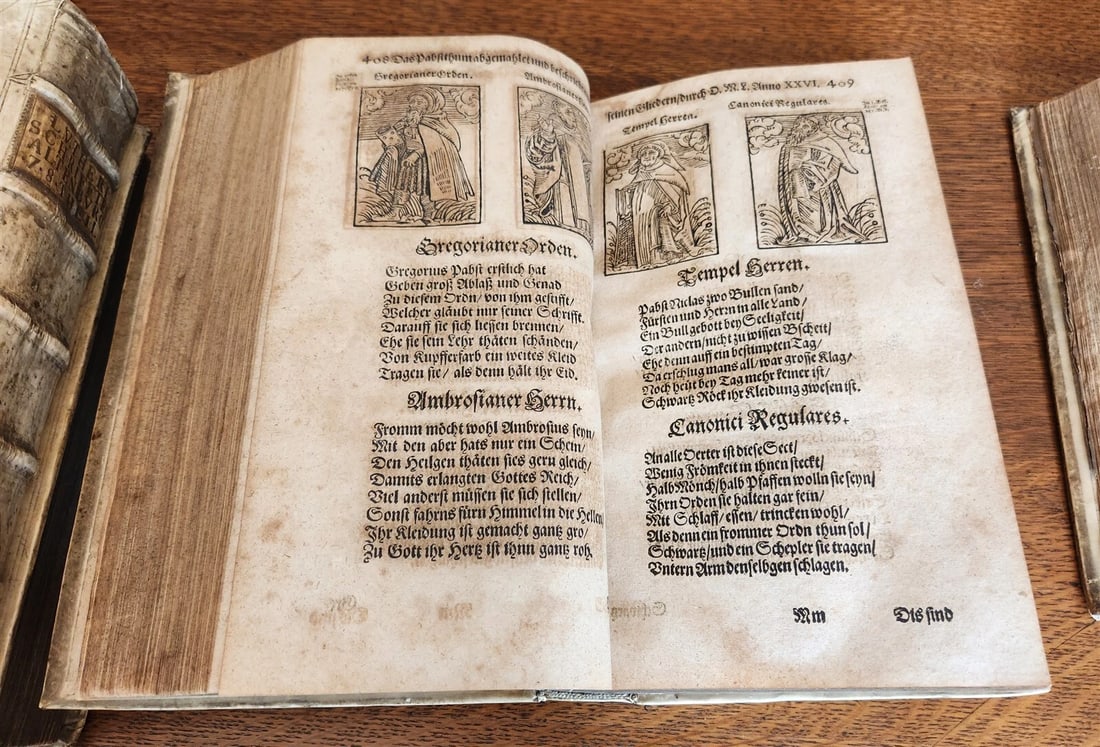 408 Das Pabstthum abgemahlet und beschrieben
Gregorianer Orden.
Ambrosianer
Gregorianer Orden.
Gregorius Pabst erstlich hat
Geben groß Ablaß und Genad
Zu diesem Ordn/ von ihm gestifft/
Welcher gläubt nur seiner Schrifft.
Darauff sie sich liessen brennen/
Ehe sie sein Lehr thäten schänden/
Von Kupfferfarb ein weites Kleid
Tragen sie/ als denn hält ihr Eid.
Ambrosianer Herrn.
Fromm möcht wohl Ambrosius seyn/
Mit den aber hats nur ein Schein/
Den Heilgen thäten sies gern gleich/
Damits erlangten Gottes Reich/
Viel anderst müssen sie sich stellen/
Sonst fahrns fürn Himmel in die Hellen/
Ihr Kleidung ist gemacht gantz gro/
Zu Gott ihr Hertz ist ihnn gantz roh.
seinen Gliedern/durch D. M. L. Anno XXVI. 409
Tempel Herren.
Canonici Regulares.
Tempel Herren.
Pabst Niclas zwo Bullen sand/
Fürsten und Herrn in alle Land/
Ein Bull gebott bey Seeligkeit/
Der andern/nicht zu wissen Bscheit/
Ehe denn auff ein bestimpten Tag/
Da erschlug mans all/ war grosse Klag/
Noch heut bey Tag mehr keiner ist/
Schwartz Röck ihr Kleidung gwesen ist.
Canonici Regulares.
An alle Oerter ist diese Sect/
Wenig Frömkeit in ihnen steckt/
Halb Mönch/halb Pfaffen wolln sie seyn/
Ihrn Orden sie halten gar fein/
Mit Schlaff/ essen/ trincken wohl/
Als denn ein frommer Ordn thun sol/
Schwartz/und ein Schepler sie tragen/
Untern Arm denselbgen schlagen.
Mm
Dis sind